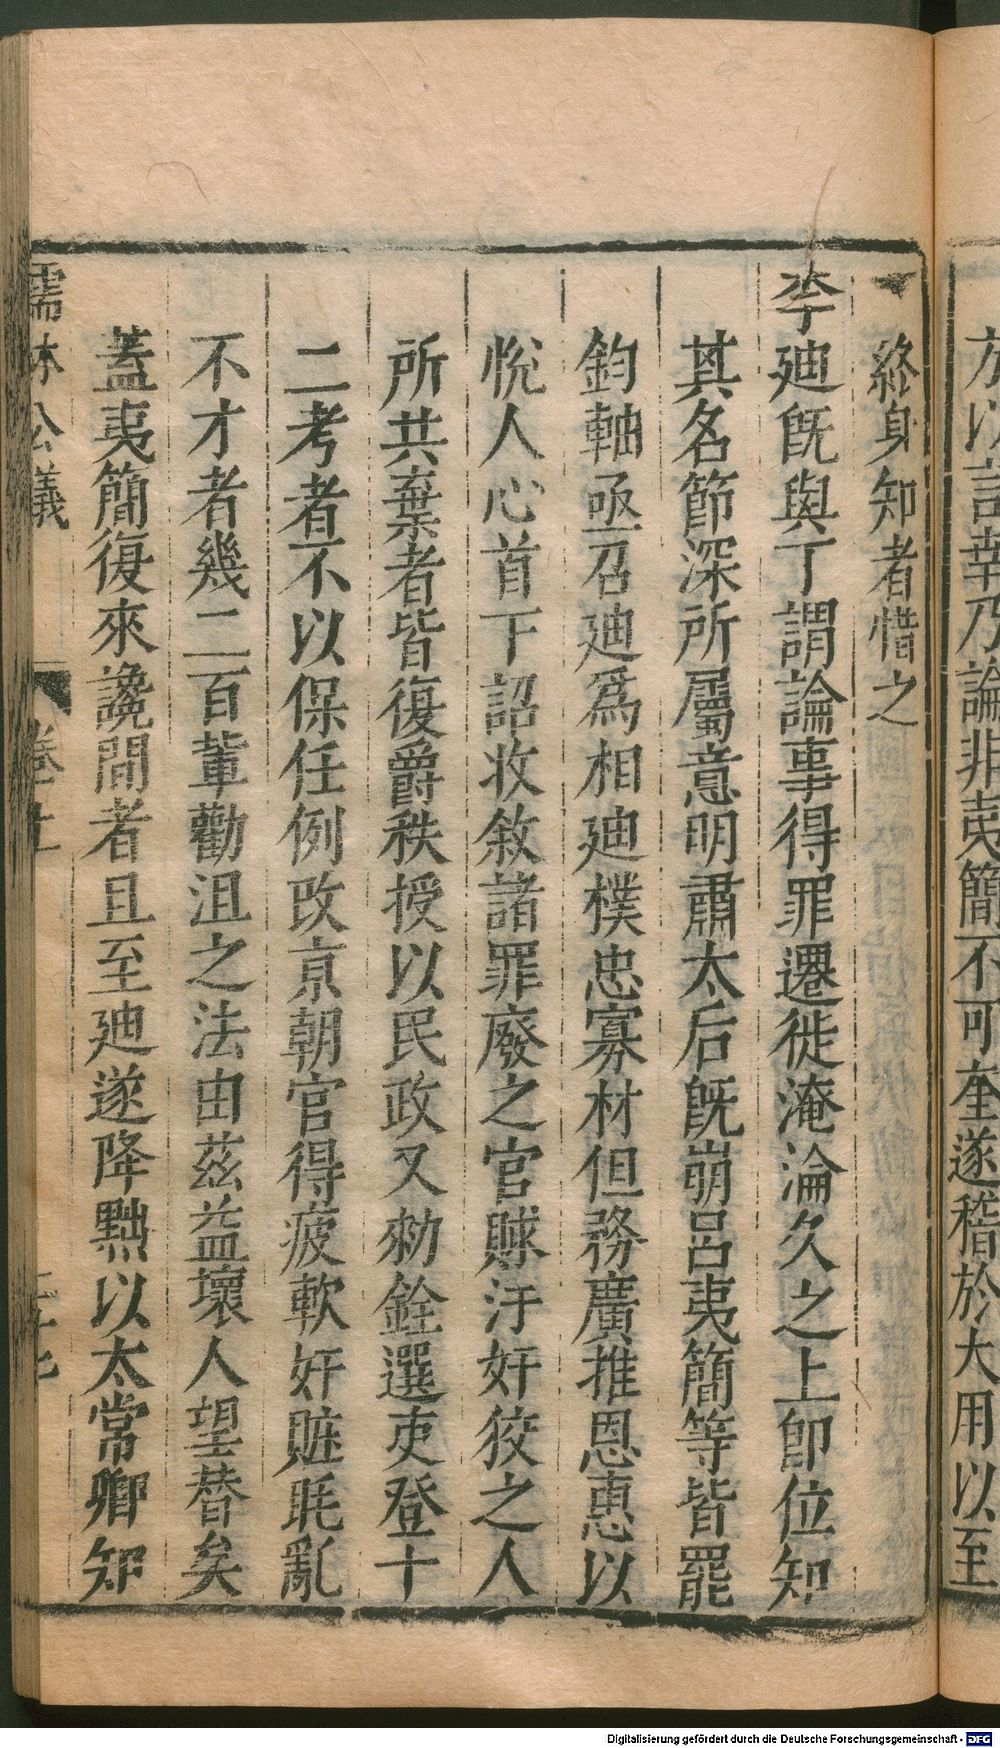 方以言幸乃論非夷簡不可奎遂稽於大用以至
終身知者惜之
李廸旣與丁謂論事得罪遷徙淹淪久之上卽位知
其名節深所屬意明肅太后旣崩呂夷簡等皆罷
鈞軸亟召廸爲相廸樸忠寡材但務廣推恩惠以
悅人心首下詔收敘諸罪廢之官賕汙奸狡之人
所共棄者皆復爵秩授以民政又勑銓選吏登十
二考者不以保任例改京朝官得疲軟奸賍眊亂
不才者幾二百輩勸沮之法由茲益壞人望替矣
蓋夷簡復來讒間者且至廸遂降黜以太常卿知
儒林公議
Digitalisierung gefördert durch die Deutsche Forschungsgemeinschaft - DFG